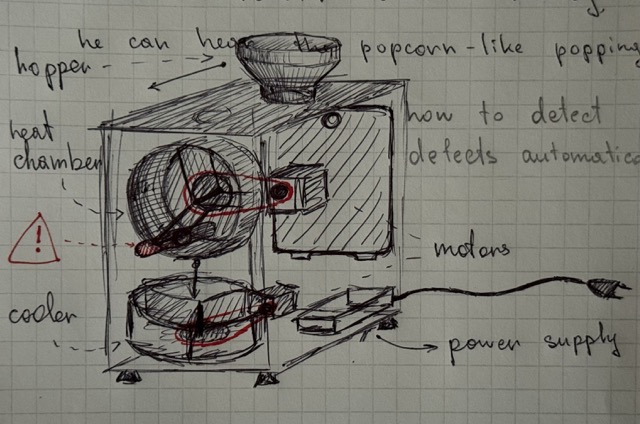 he can hear the popcorn-like popping
hopper
how to detect
defects automatica
heat
chamber
!
motors
cooler
power supply